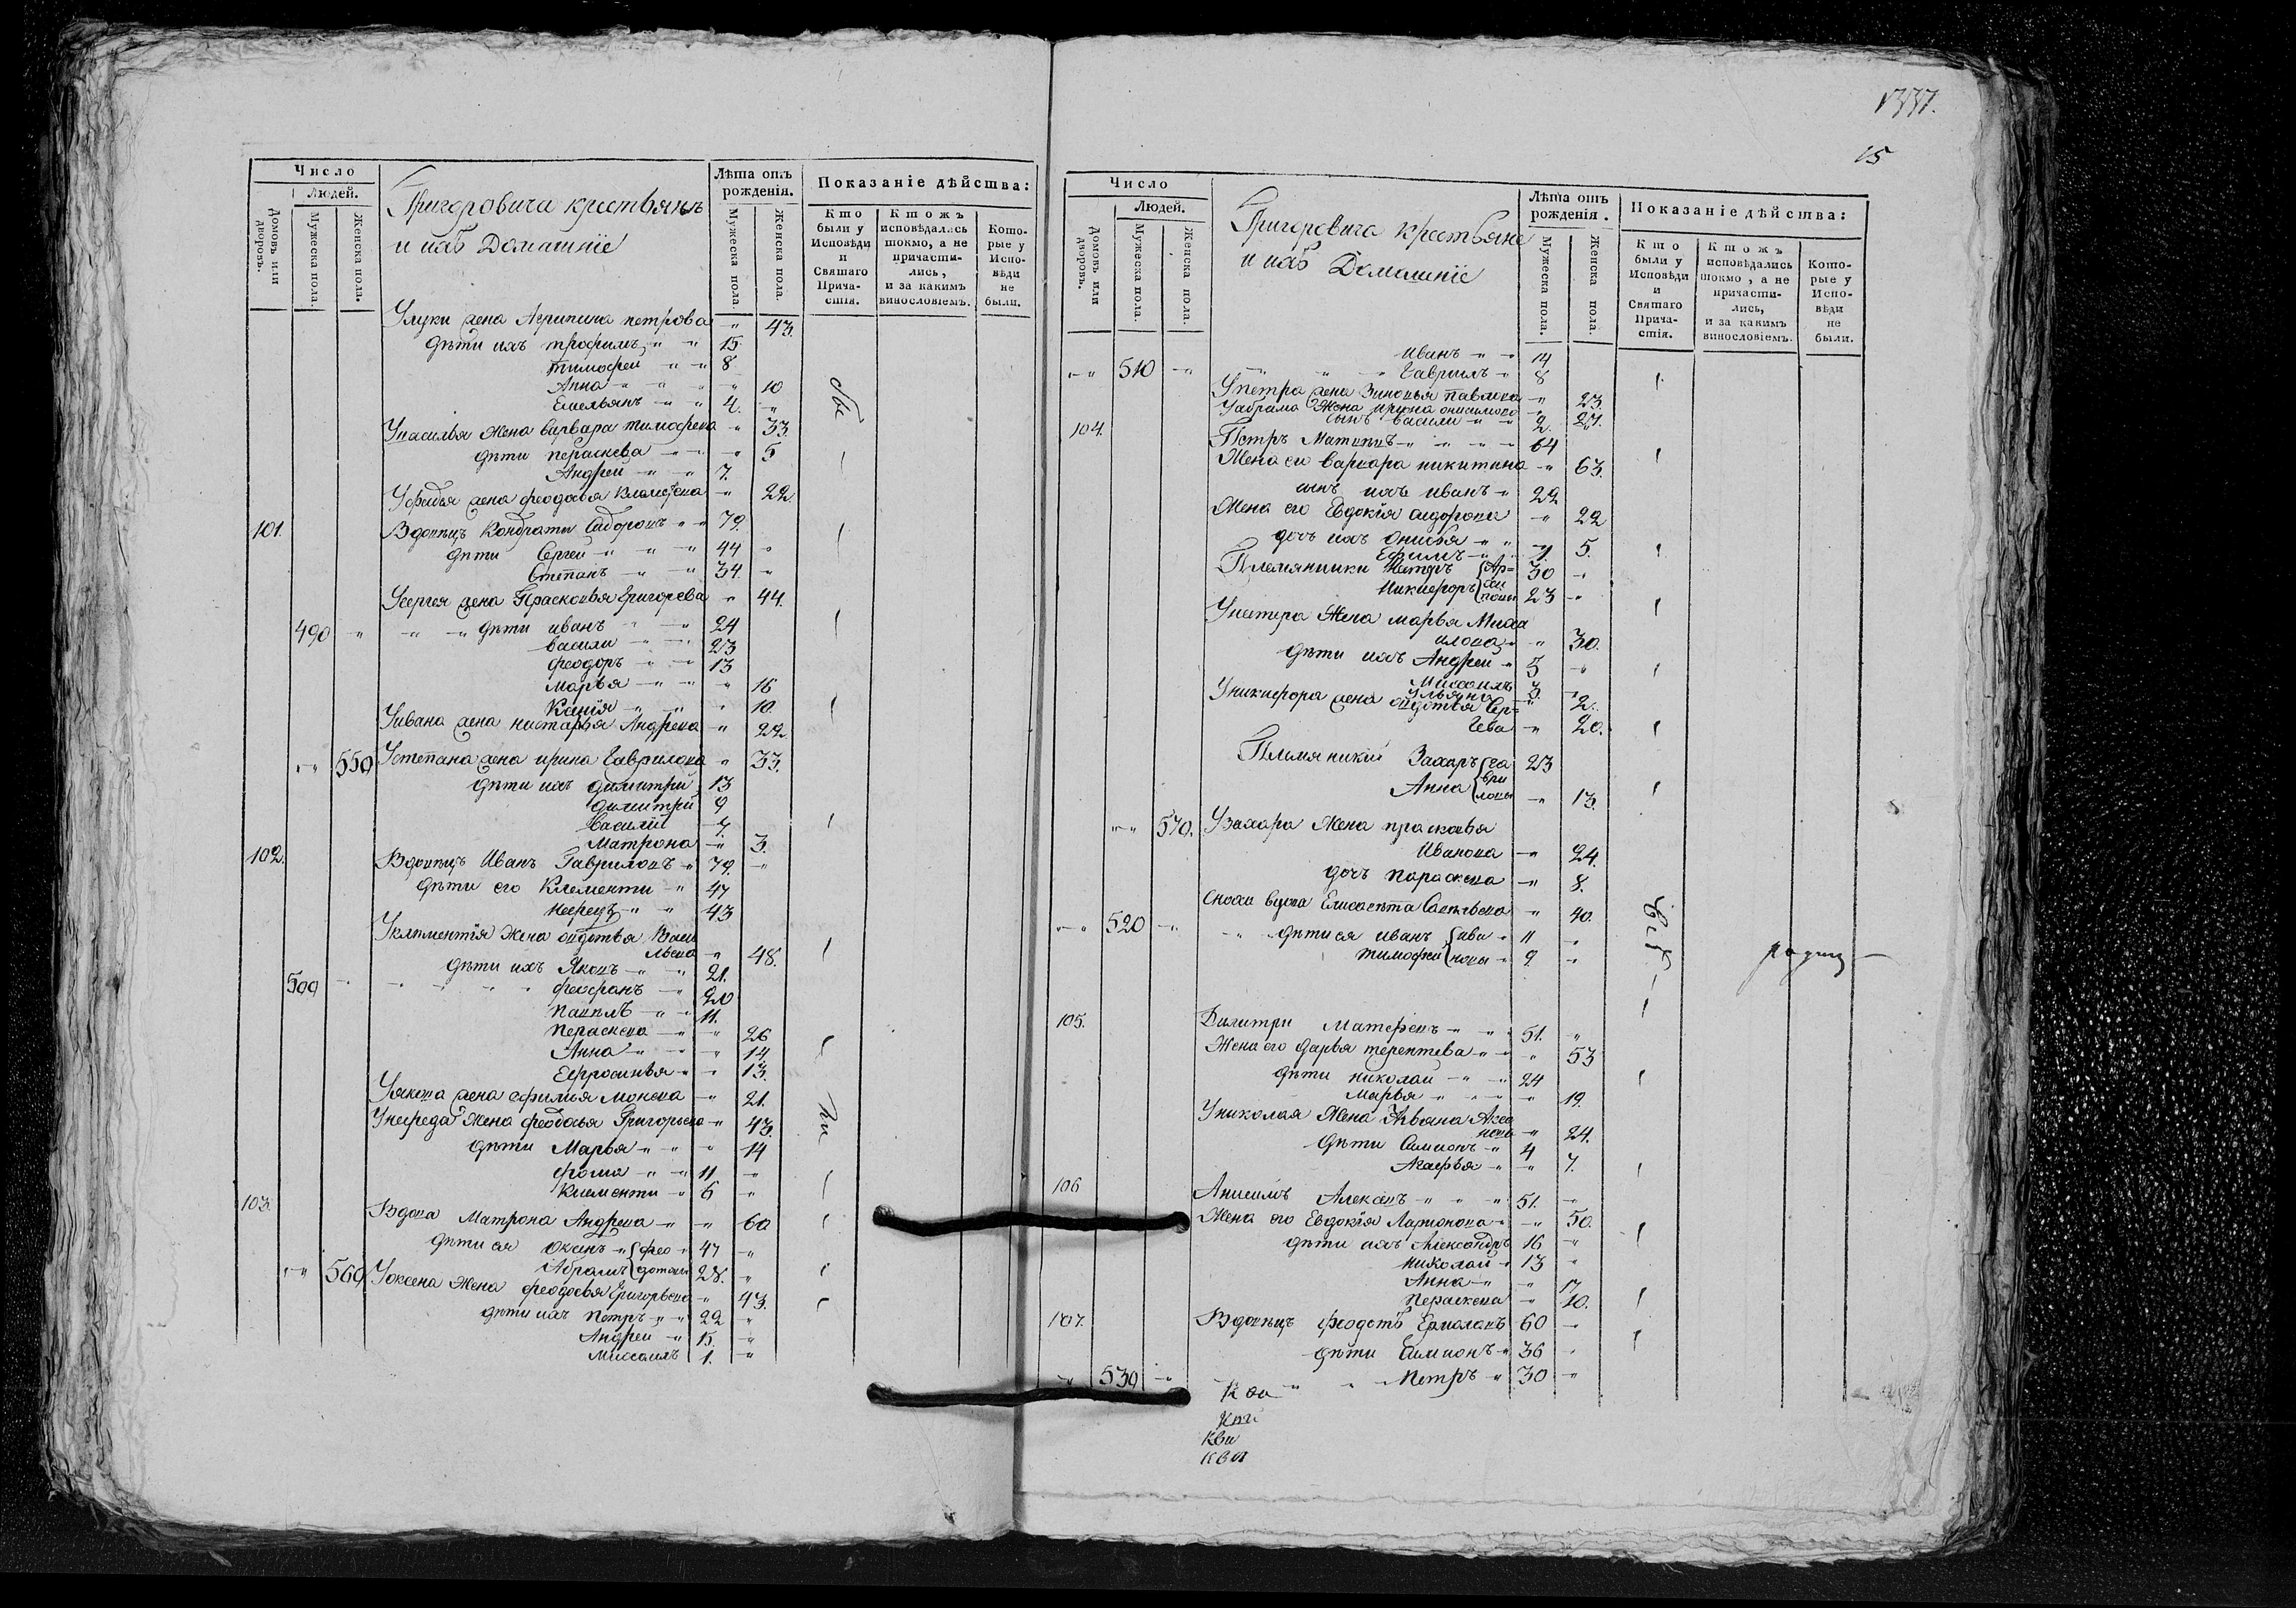 1337.
15
Число
Людей.
Домовъ или дворовъ.
Мужеска пола.
Женска пола.
Григоровича крестьянъ
и ихъ Домашніе
Лѣта отъ рожденія.
Мужеска пола.
Женска пола.
Показаніе дѣйства:
Кто были у Исповѣди и Святаго Прича-стія.
Ктожъ исповѣдались токмо, а не причасти-лись, и за какимъ винословіемъ.
Кото-рые у Испо-вѣди не были.
Улуки жена Агрипина петрова " 43.
дѣти ихъ трофимъ " " 15
тимофеи " " 8
Анна " " " 10
Емельянъ " " 4. "
Увасилья жена варвара тимофѣева " 33.
дѣти пераскева " " " 5
Андреи " " 7.
жена феодосья " 22
101. Вдовецъ Кондрати Сидоровъ " " 79.
дѣти Сергеи " " " 44 "
Степанъ " " 34. "
Усергея жена Прасковья Григорева " 44.
490 " " " дѣти иванъ " " 24
васили " " 23
феодоръ " " 13
марья " " " 16
" 10
Уивана жена настасья Андреева " 22
" 550 Устепана жена ирина Гаврилова " 33.
дѣти ихъ димитри 13
димитри 9
Василій 7.
Матрона " 3.
102. Вдовецъ Иванъ Гавриловъ " 79. "
дѣти его Клементи " 47
нефедъ " " 43
Уклементія жена овдотья Васи
льева " 48.
дѣти ихъ Яковъ " " 21.
500 " " " " " феофанъ " 20
павилъ " " 11.
пераскева " " 26
Анна " " " 14
Ефросинья " " 13.
Уякова жена афимья " 21.
Унефеда жена феодосья Григорьева " 43.
дѣти Марья " " " 14
фома " " 11 "
Клементи " 6 "
103. Вдова Матрона Андреева " " 60
дѣти ея " фео " 47 "
Абрамъ дотовы 28. "
" 560 Жена феодосья Григорьева " 43.
дѣти ихъ Петръ " " 22 "
Андреи " 15. "
Михаилъ 1. "
Число
Людей.
Домовъ или дворовъ.
Мужеска пола.
Женска пола.
Григоровича крестьяне
и ихъ Домашніе
Лѣта отъ рожденія.
Мужеска пола.
Женска пола.
Показаніе дѣйства:
Кто были у Исповѣди и Святаго Прича-стія.
Ктожъ исповѣдались токмо, а не причасти-лись, и за какимъ винословіемъ.
Кото-рые у Испо-вѣди не были.
Иванъ " " 14
" " 510 " " " " Гаврилъ " 8
Упетра жена Зиновья павлова " 23.
Уабрама Жена ирина онисимова " 27.
сынъ васили " " 2. "
104. Петръ " " " " 64
Жена ево варвара никитина " 63.
сынъ ихъ иванъ " 22
Жена его Евдокія сидорова " 22
дочь ихъ " " " 5.
Ефимъ " " 1.
Племянники Петръ 30 "
Никифоръ 23 "
Упетра Жена марья Миха
илова " " 30.
дѣти ихъ Андреи " 5 "
Михаилъ 3. "
ульяна " 2.
Уникифора жена овдотья Сер=
гева " 20.
Племяникій Захаръ га 23
Анна ври ловы " 13.
" " 570. Узахара Жена прасковья
Иванова " 24.
дочь параскева " 8.
Сноха вдова Елисавета " 40.
" " 520 " " " дѣти ея иванъ ива " 11 "
тимофеи новы " 9. "
105. Димитри " " 51. "
Жена его дарья терентева " " " 53
дѣти николаи " " 24
Марья " " " " 19.
Униколая Жена " 24.
дѣти Симионъ " 4
Агафья " " 7.
106 Анисимъ " " " 51. "
Жена его Евдокія Ларионова " " 50.
дѣти ихъ Александръ 16 "
николаи " 13 "
Анна " " 17
Пераскева " 10.
107. Вдовецъ феодотъ Ермолаевъ 60 "
дѣти Симионъ " 36 "
" 530 " " " Петръ " 30 "